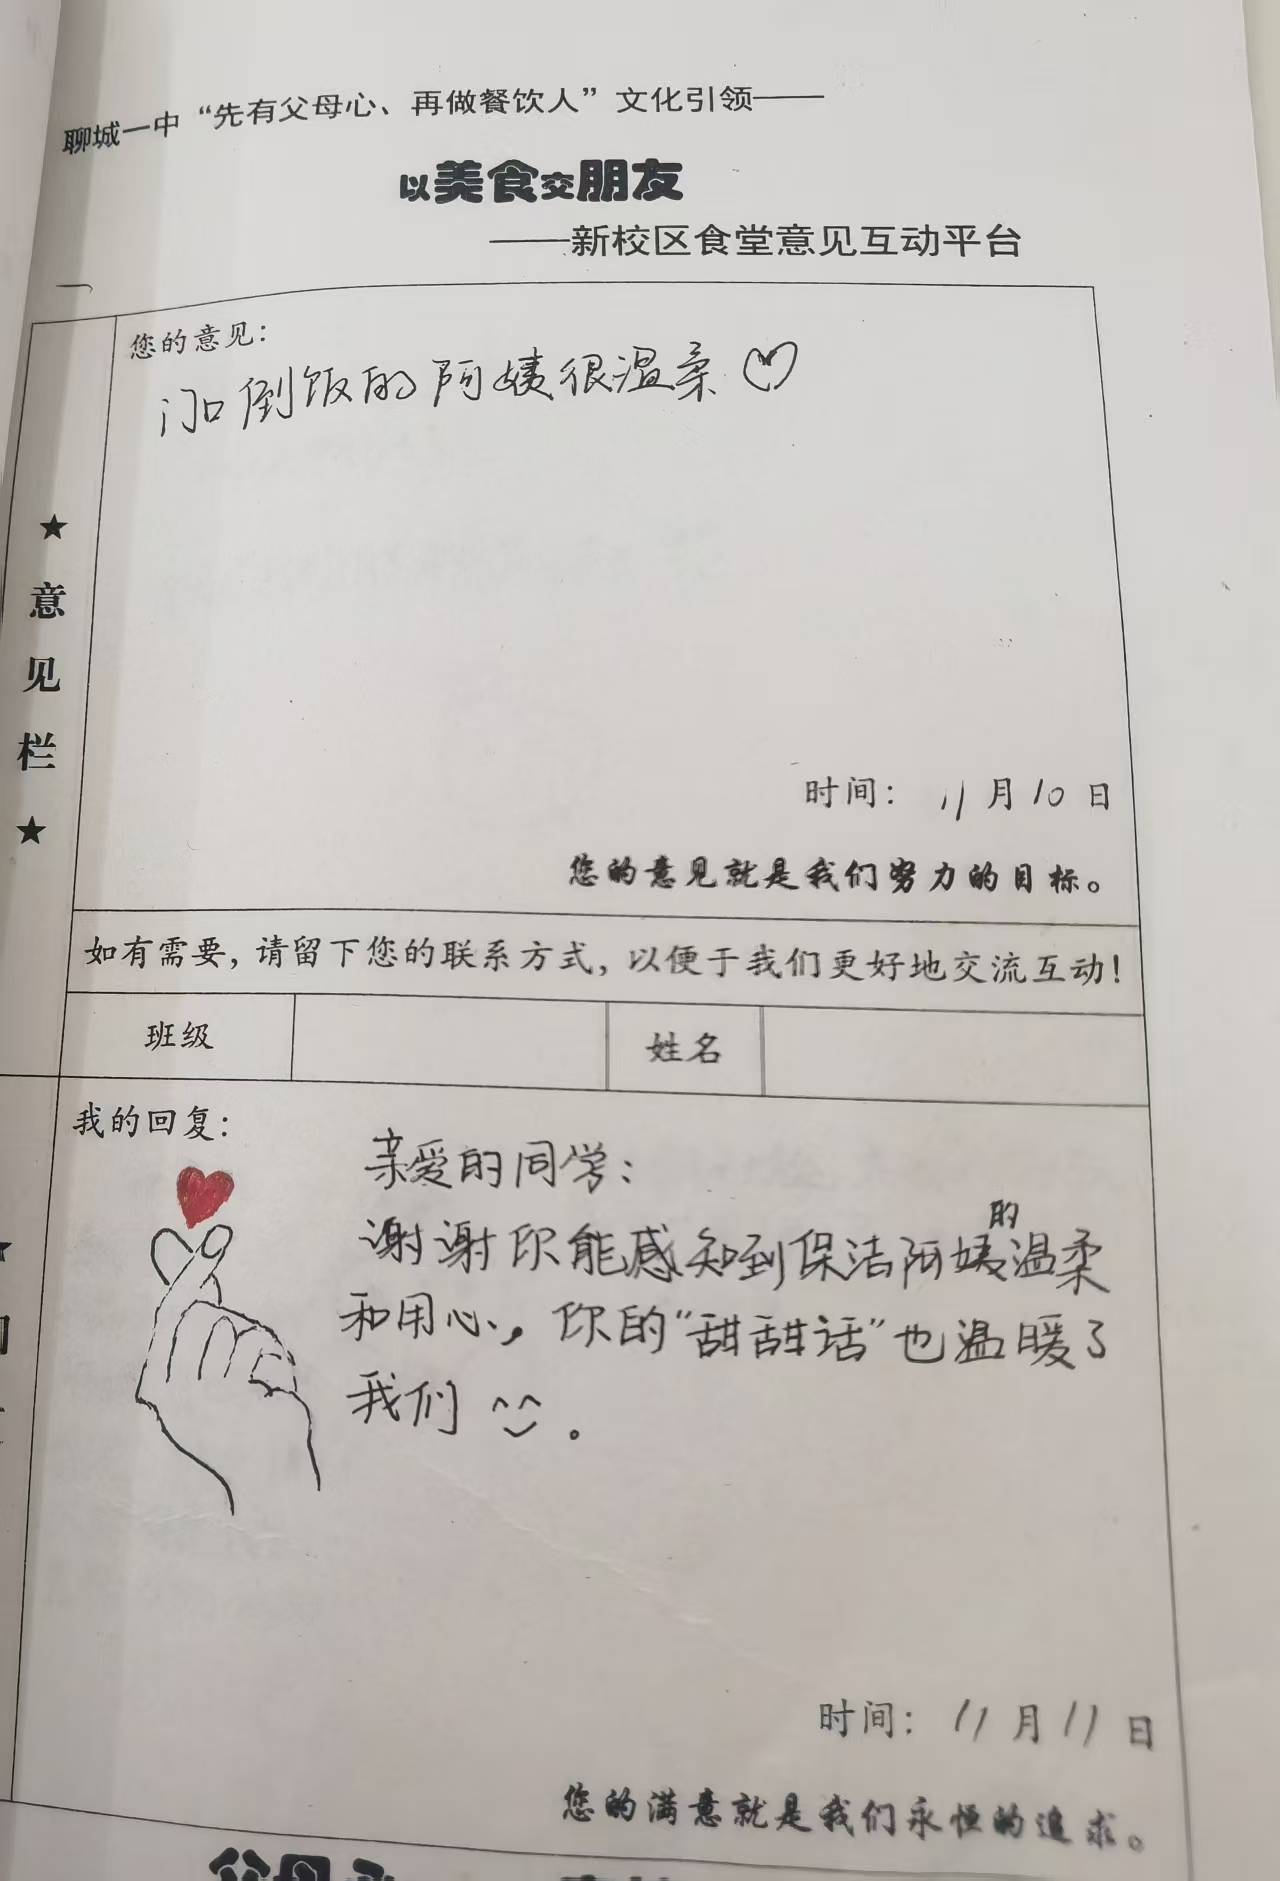 聊城一中“先有父母心、再做餐饮人”文化引领——
以美食交朋友
——新校区食堂意见互动平台
★意见栏★
您的意见：
门口倒饭的阿姨很温柔♡
时间： 11月10日
您的意见就是我们努力的目标。
如有需要，请留下您的联系方式，以便于我们更好地交流互动！
班级 姓名
我的回复：
亲爱的同学：
谢谢你能感知到保洁阿姨的温柔
和用心，你的“甜甜话”也温暖了
我们^^。
时间： 11月11日
您的满意就是我们永恒的追求。
父母